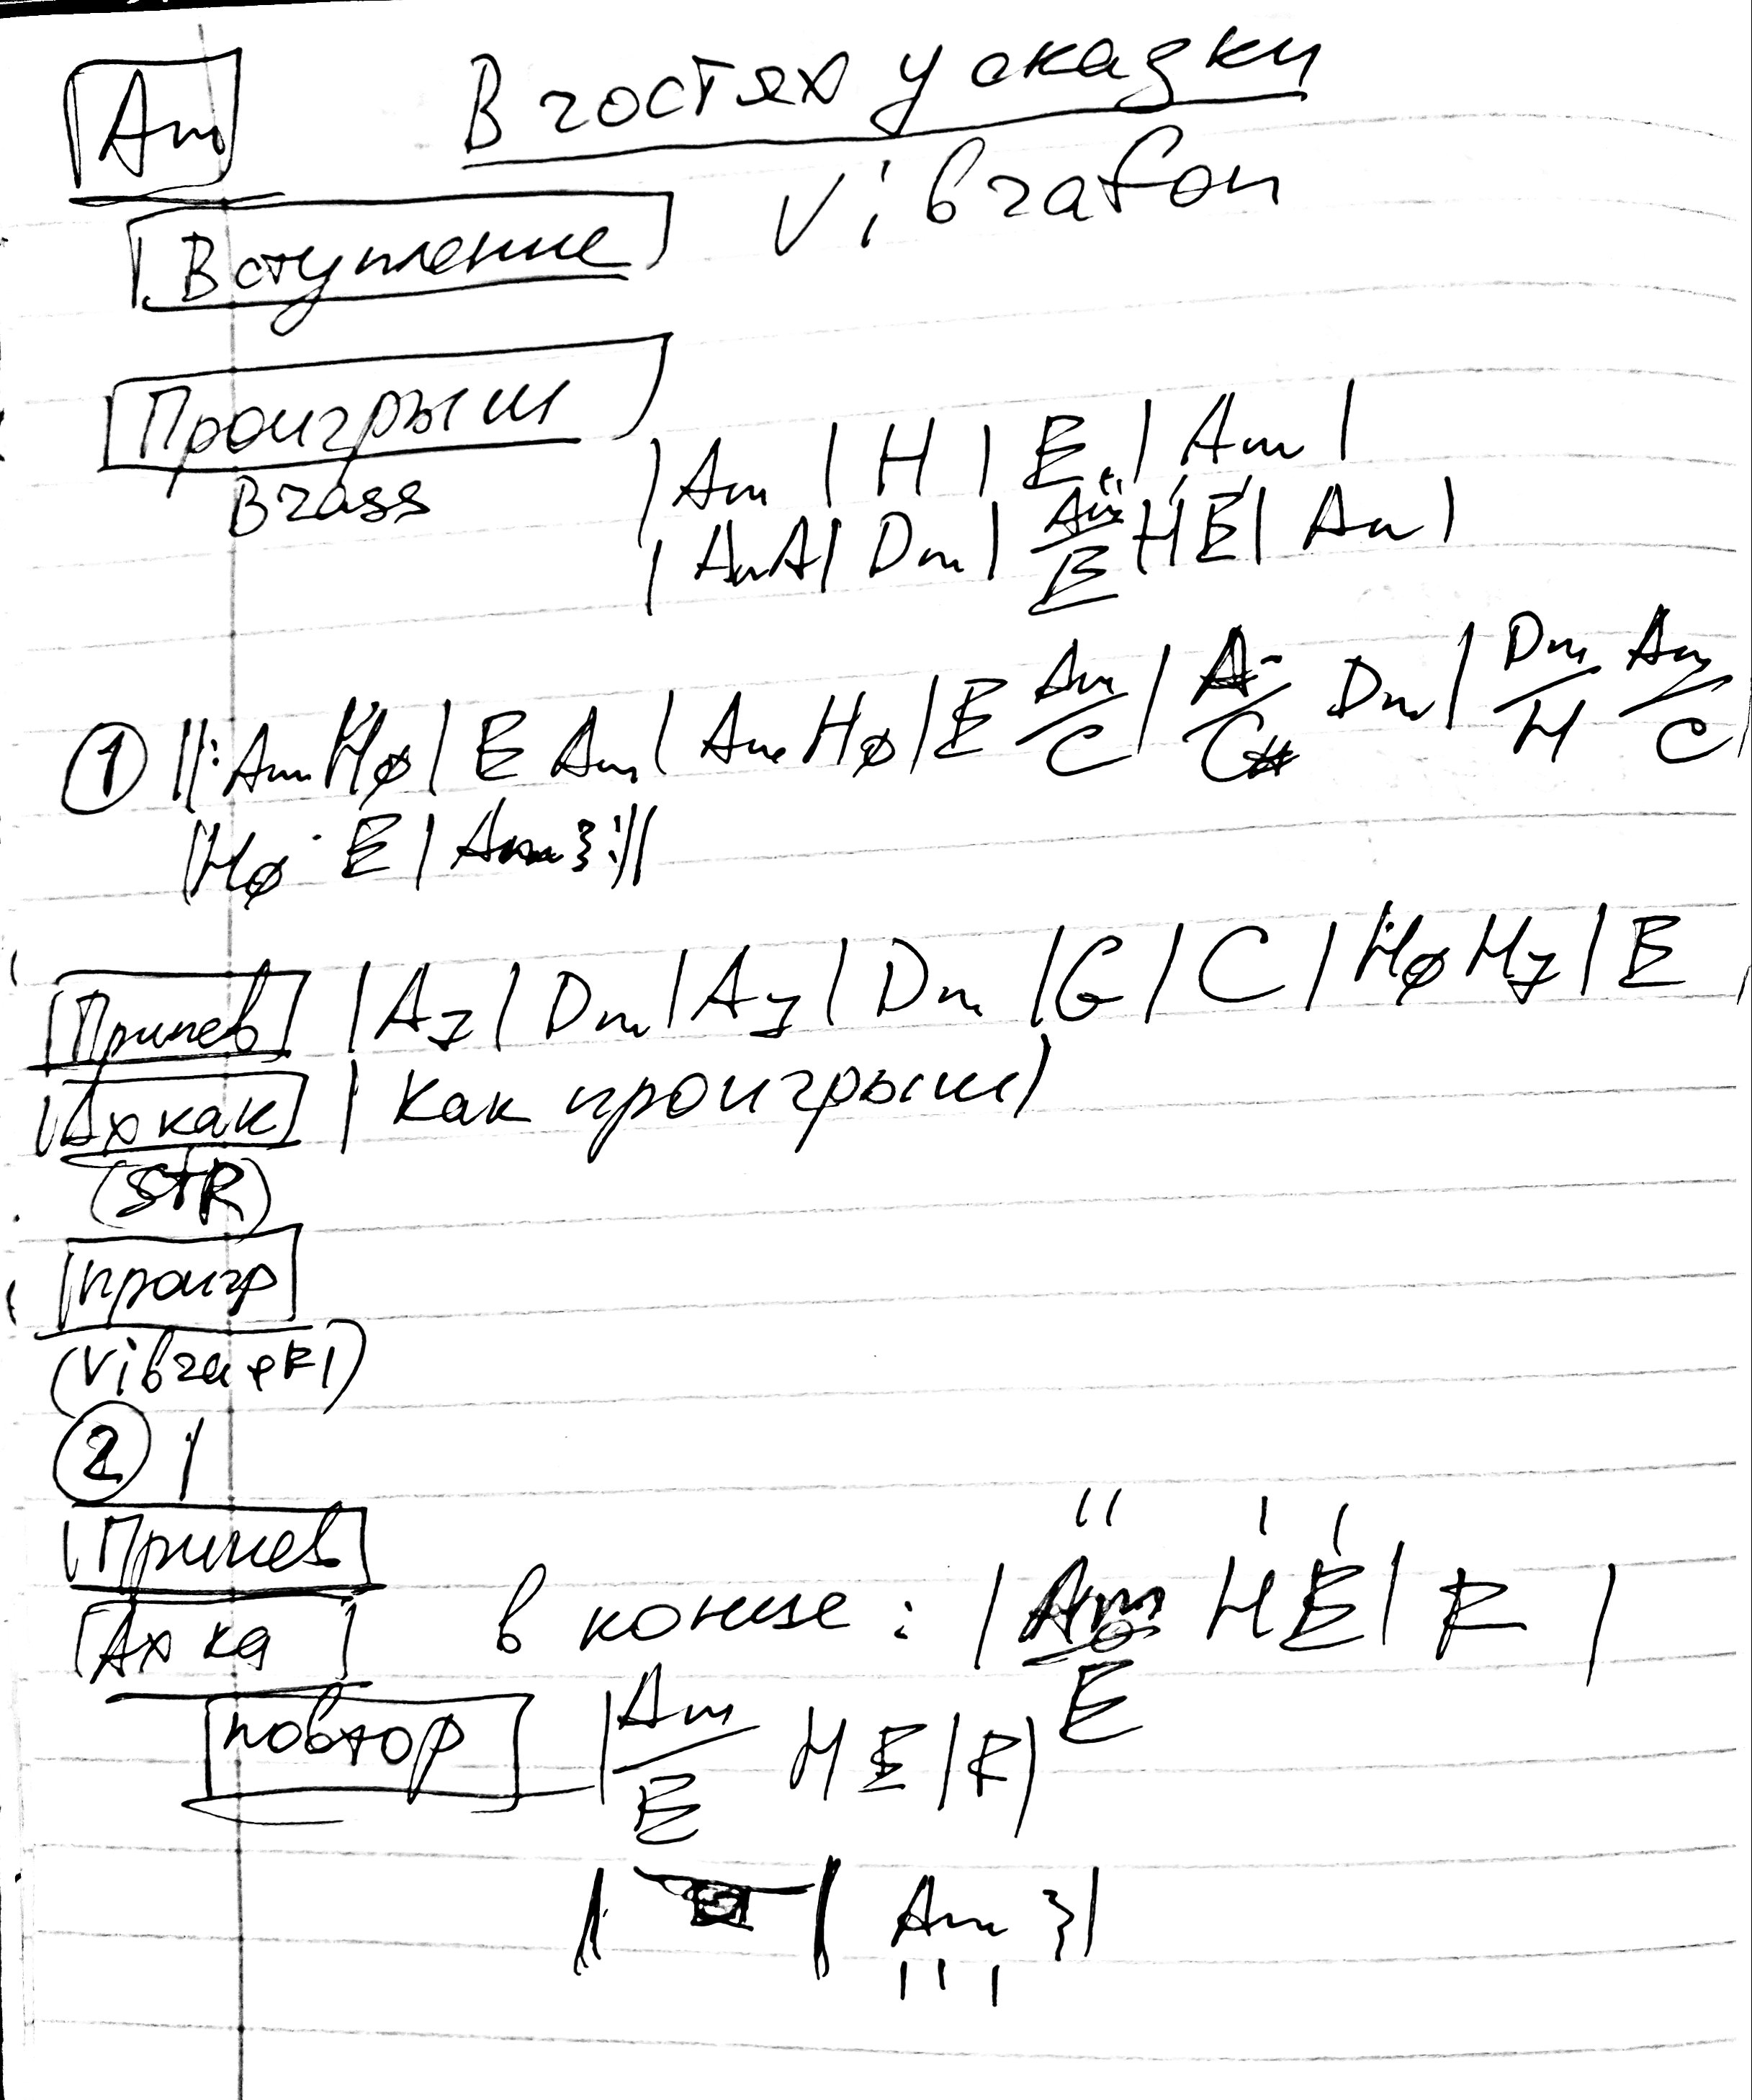 Am В гостях у сказки
Вступление Vibrafon
Проигрыш
Brass
| Am | H | E | Am |
| Am A | Dm | Am/E H E | Am |
① ||: Am Hø | E Am | Am Hø | E Am/C | A/C# Dm | Dm/H Am/C |
| Hø E | Am :||
Припев | A7 | Dm | A7 | Dm | G | C | Hø H7 | E |
Ах как | как проигрыш |
(STR)
проигр
② |
Припев
Ах ка в конце: | Am/E H E | F |
повтор | Am/E H E | F |
| Am |